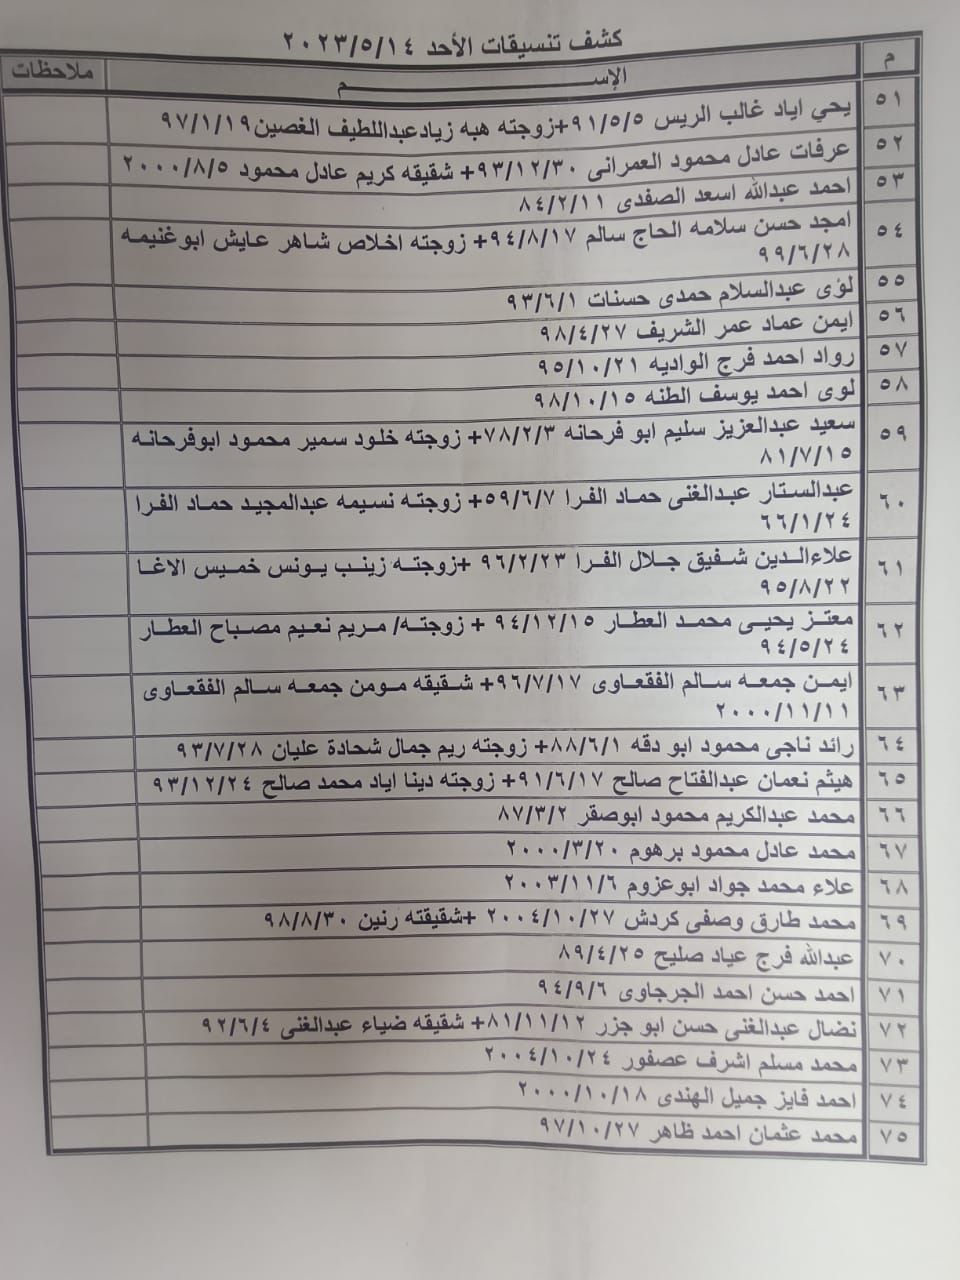 كشف تنسيقات الأحد ٢٠٢٣/٥/١٤
م الإســـــــــــــــــــــــــــــــم ملاحظات
٥١ يحي اياد غالب الريس ٩١/٥/٥+زوجته هبه زيادعبداللطيف الغصين٩٧/١/١٩
٥٢ عرفات عادل محمود العمرانى ٩٣/١٢/٣٠+ شقيقه كريم عادل محمود ٢٠٠٠/٨/٥
٥٣ احمد عبدالله اسعد الصفدى ٨٤/٢/١١
٥٤ امجد حسن سلامه الحاج سالم ٩٤/٨/١٧+ زوجته اخلاص شاهر عايش ابوغنيمه
٩٩/٦/٢٨
٥٥ لؤى عبدالسلام حمدى حسنات ٩٣/٦/١
٥٦ ايمن عماد عمر الشريف ٩٨/٤/٢٧
٥٧ رواد احمد فرج الواديه ٩٥/١٠/٢١
٥٨ لوى احمد يوسف الطنه ٩٨/١٠/١٥
٥٩ سعيد عبدالعزيز سليم ابو فرحانه ٧٨/٢/٣+ زوجته خلود سمير محمود ابوفرحانه
٨١/٧/١٥
٦٠ عبدالستار عبدالغنى حماد الفرا ٥٩/٦/٧+ زوجته نسيمه عبدالمجيد حماد الفرا
٦٦/١/٢٤
٦١ علاءالدين شفيق جلال الفرا ٩٦/٢/٢٣ +زوجته زينب يونس خميس الاغا
٩٥/٨/٢٢
٦٢ معتز يحيى محمد العطار ٩٤/١٢/١٥ + زوجته/ مريم نعيم مصباح العطار
٩٤/٥/٢٤
٦٣ ايمن جمعه سالم الفقعاوى ٩٦/٧/١٧+ شقيقه مومن جمعه سالم الفقعاوى
٢٠٠٠/١١/١١
٦٤ رائد ناجى محمود ابو دقه ٨٨/٦/١+ زوجته ريم جمال شحادة عليان ٩٣/٧/٢٨
٦٥ هيثم نعمان عبدالفتاح صالح ٩١/٦/١٧+ زوجته دينا اياد محمد صالح ٩٣/١٢/٢٤
٦٦ محمد عبدالكريم محمود ابوصقر ٨٧/٣/٢
٦٧ محمد عادل محمود برهوم ٢٠٠٠/٣/٢٠
٦٨ علاء محمد جواد ابوعزوم ٢٠٠٣/١١/٦
٦٩ محمد طارق وصفى كردش ٢٠٠٤/١٠/٢٧ +شقيقته رنين ٩٨/٨/٣٠
٧٠ عبدالله فرج عياد صليح ٨٩/٤/٢٥
٧١ احمد حسن احمد الجرجاوى ٩٤/٩/٦
٧٢ نضال عبدالغنى حسن ابو جزر ٨١/١١/١٢+ شقيقه ضياء عبدالغنى ٩٢/٦/٤
٧٣ محمد مسلم اشرف عصفور ٢٠٠٤/١٠/٢٤
٧٤ احمد فايز جميل الهندى ٢٠٠٠/١٠/١٨
٧٥ محمد عثمان احمد ظاهر ٩٧/١٠/٢٧